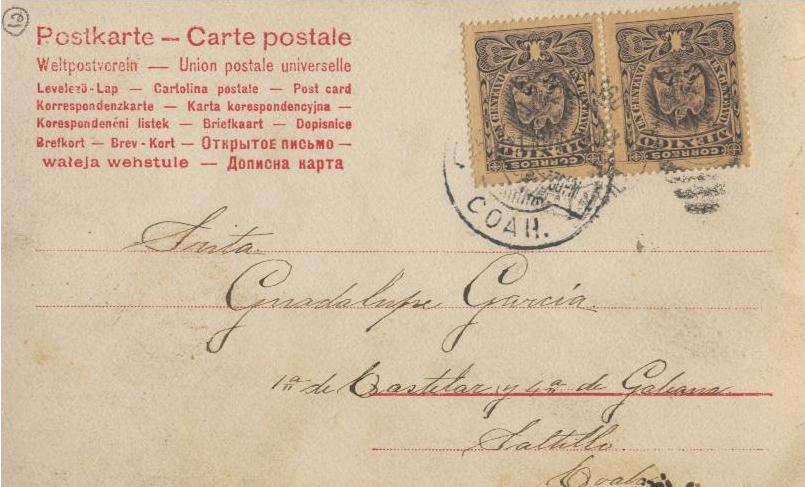 Postkarte — Carte postale
Weltpostverein — Union postale universelle
Levelezö-Lap — Cartolina postale — Post card
Korrespondenzkarte — Karta korespondencyjna —
Korespondenční listek — Briefkaart — Dopisnice
Brefkort — Brev-Kort — Открытое письмо —
wateja wehstule — Дописна карта
UN CENTAVO UN CENTAVO
MEXICO
CORREOS
UN CENTAVO UN CENTAVO
MEXICO
CORREOS
COAH.
Srita.
Guadalupe García.
1ª de Castelar y 4ª de Galeana.
Saltillo.
Coah